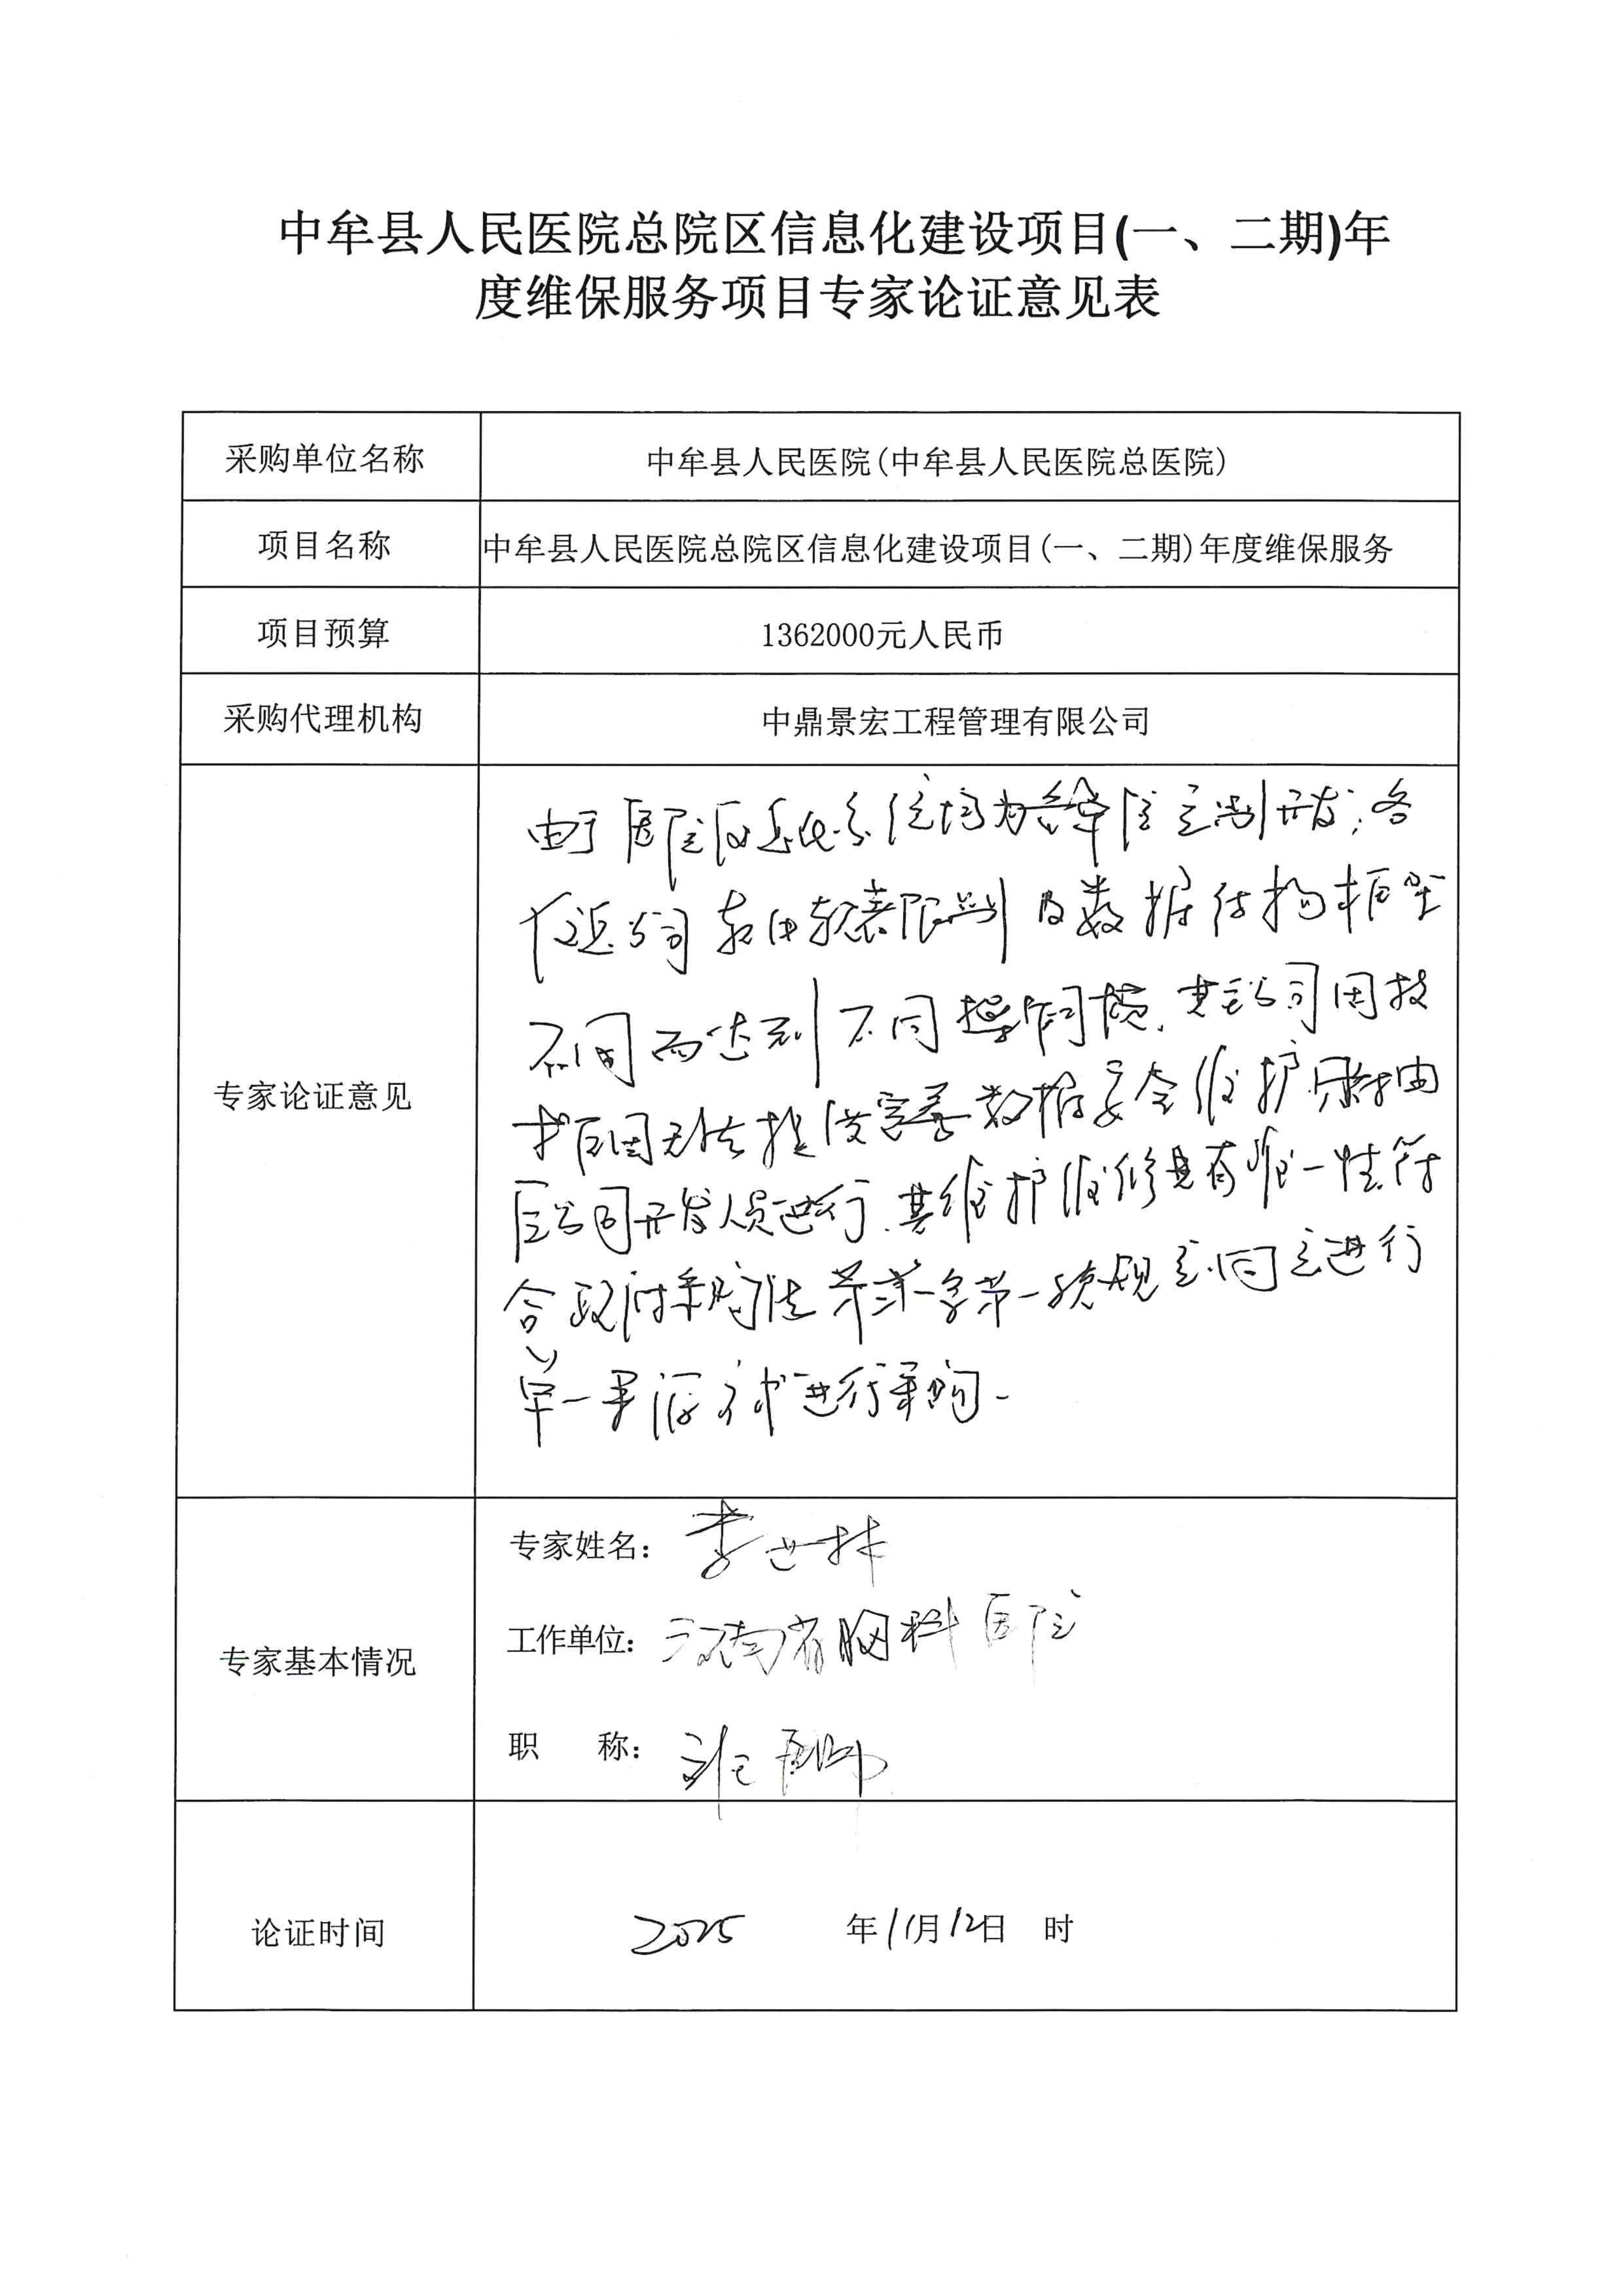 中牟县人民医院总院区信息化建设项目(一、二期)年
度维保服务项目专家论证意见表
采购单位名称
中牟县人民医院(中牟县人民医院总医院)
项目名称
中牟县人民医院总院区信息化建设项目(一、二期)年度维保服务
项目预算
1362000元人民币
采购代理机构
中鼎景宏工程管理有限公司
专家论证意见
由于医院信息化系统均为 定制开发;各
公司 限制及数据结构框架
不同而达到不同操作 其它公司因技
术原因无法提供完善数据安全维护 由
原公司开发人员进行.其维护维修具有唯一性.符
合政府采购法第三十一条第一款规定.同意进行
单一来源方式进行采购.
专家基本情况
专家姓名: 李世林
工作单位: 河南省胸科医院
职 称:
论证时间
2025 年11月12日 时